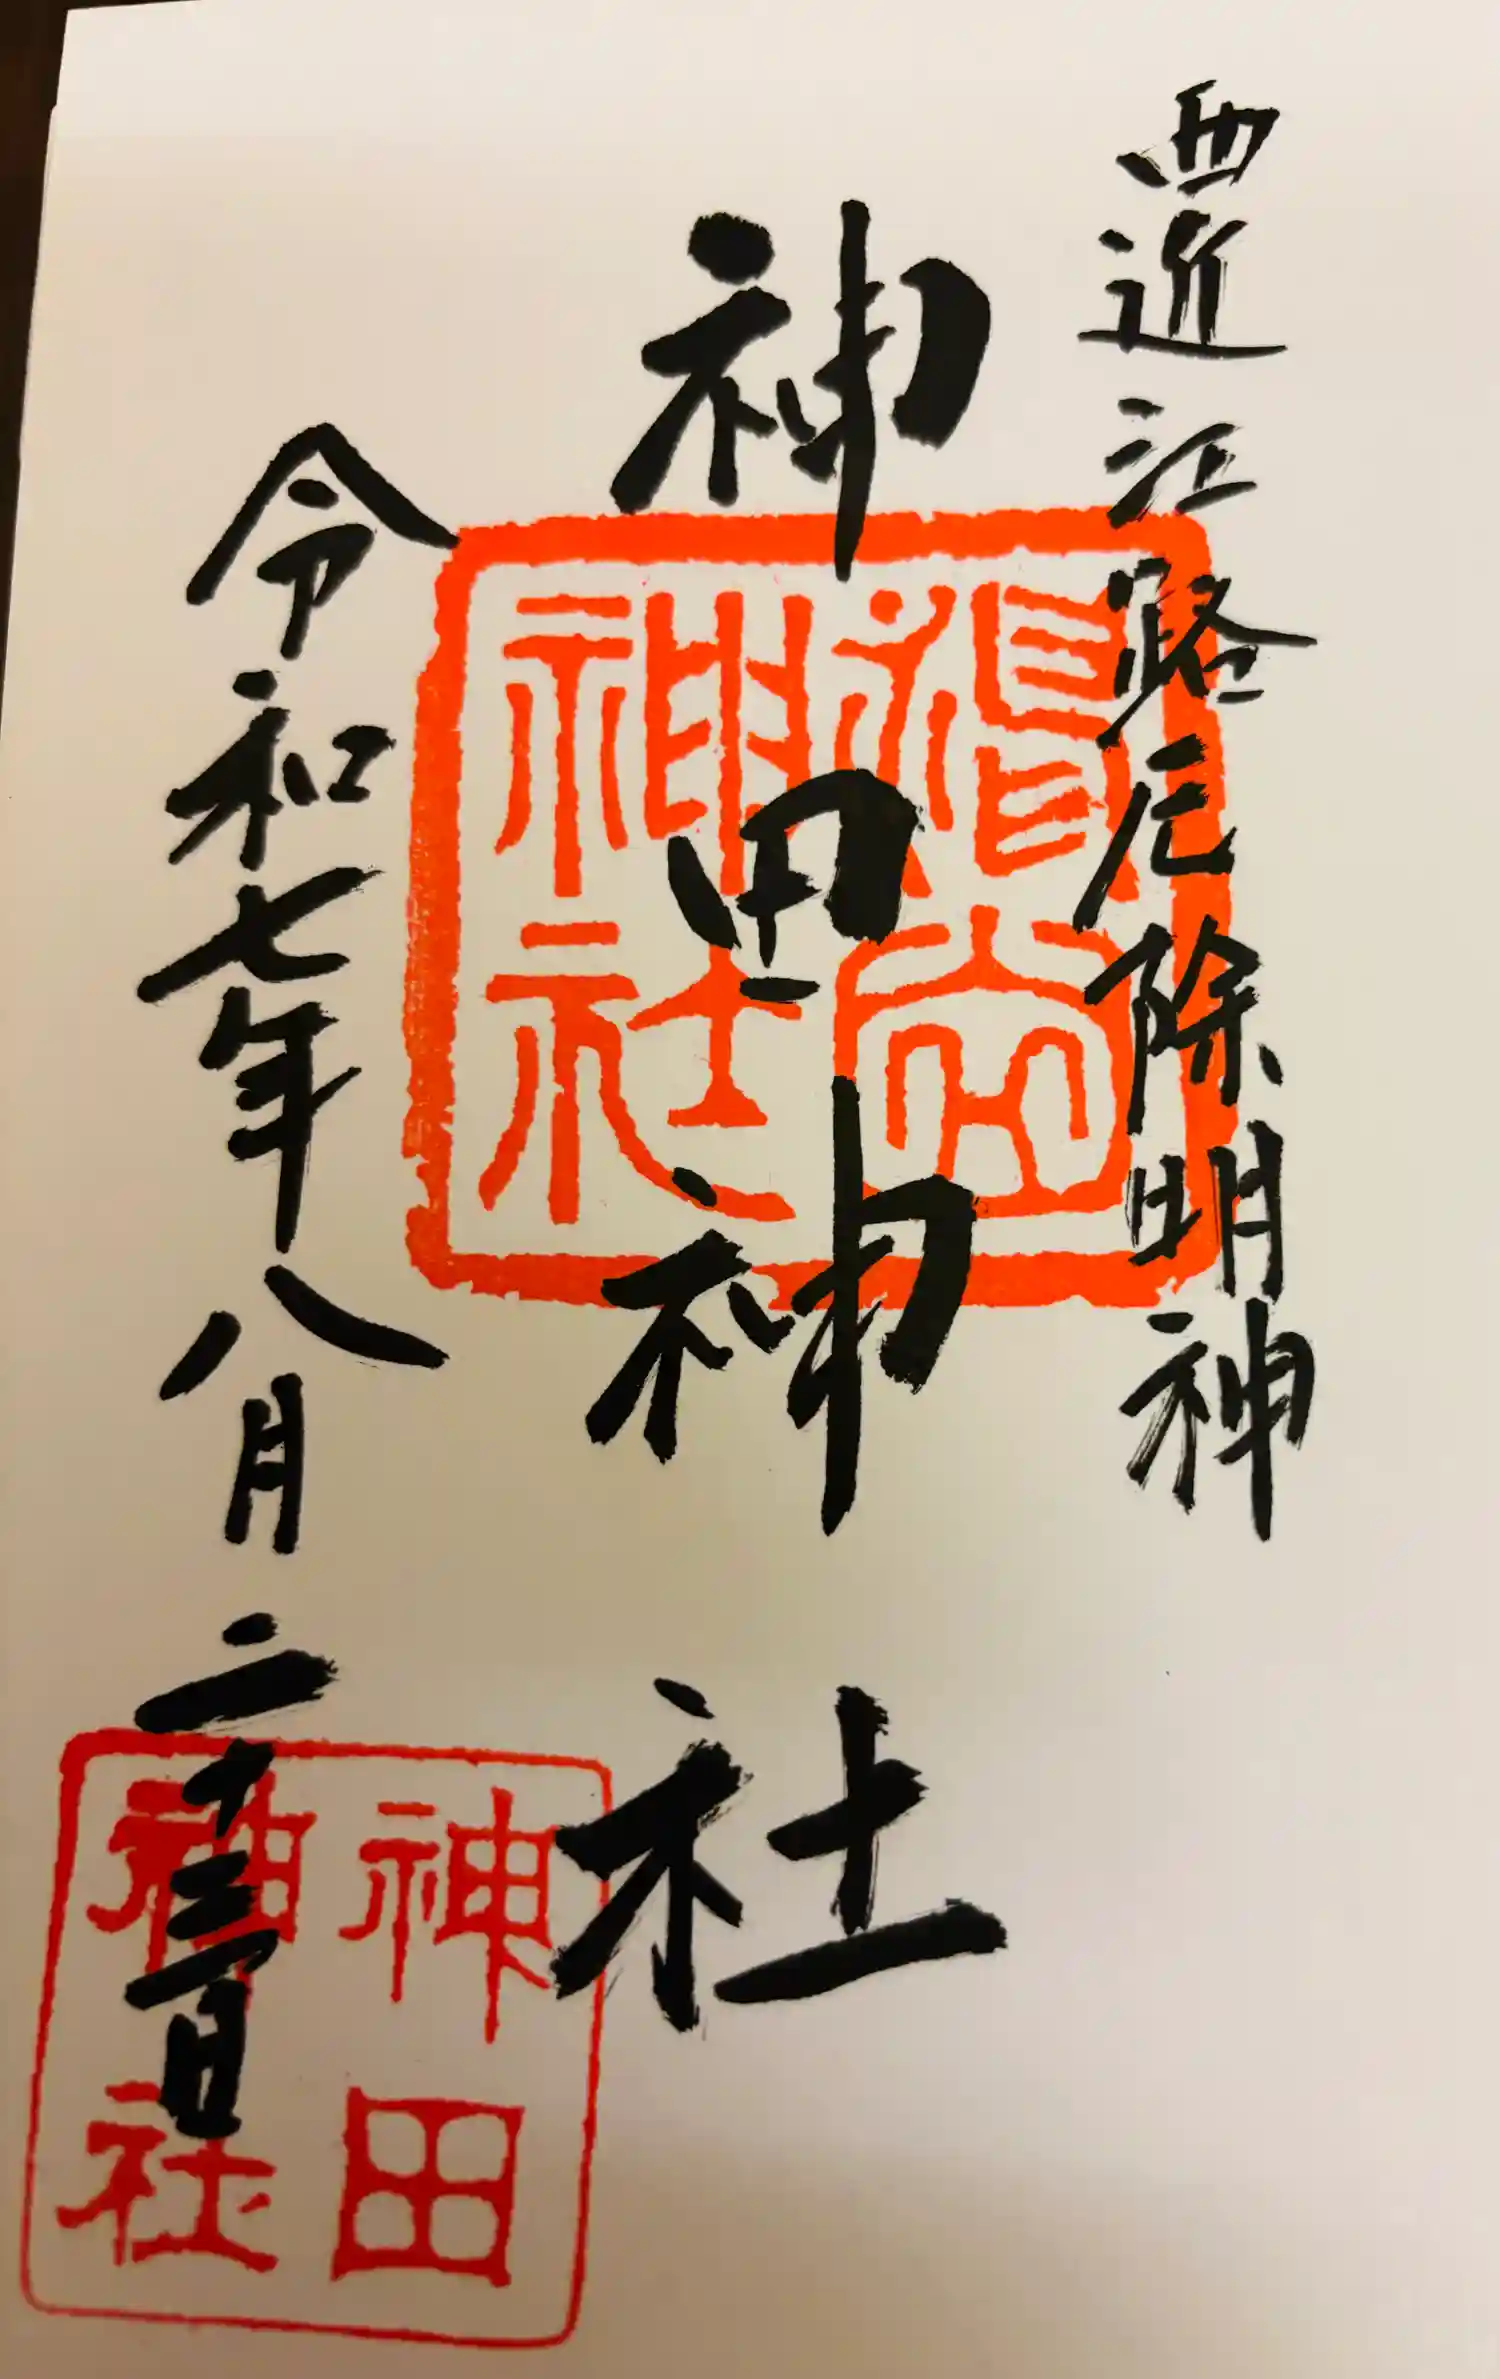 西近江路厄除明神
神田神社
令和七年八月二十三日
神社
神田
神社